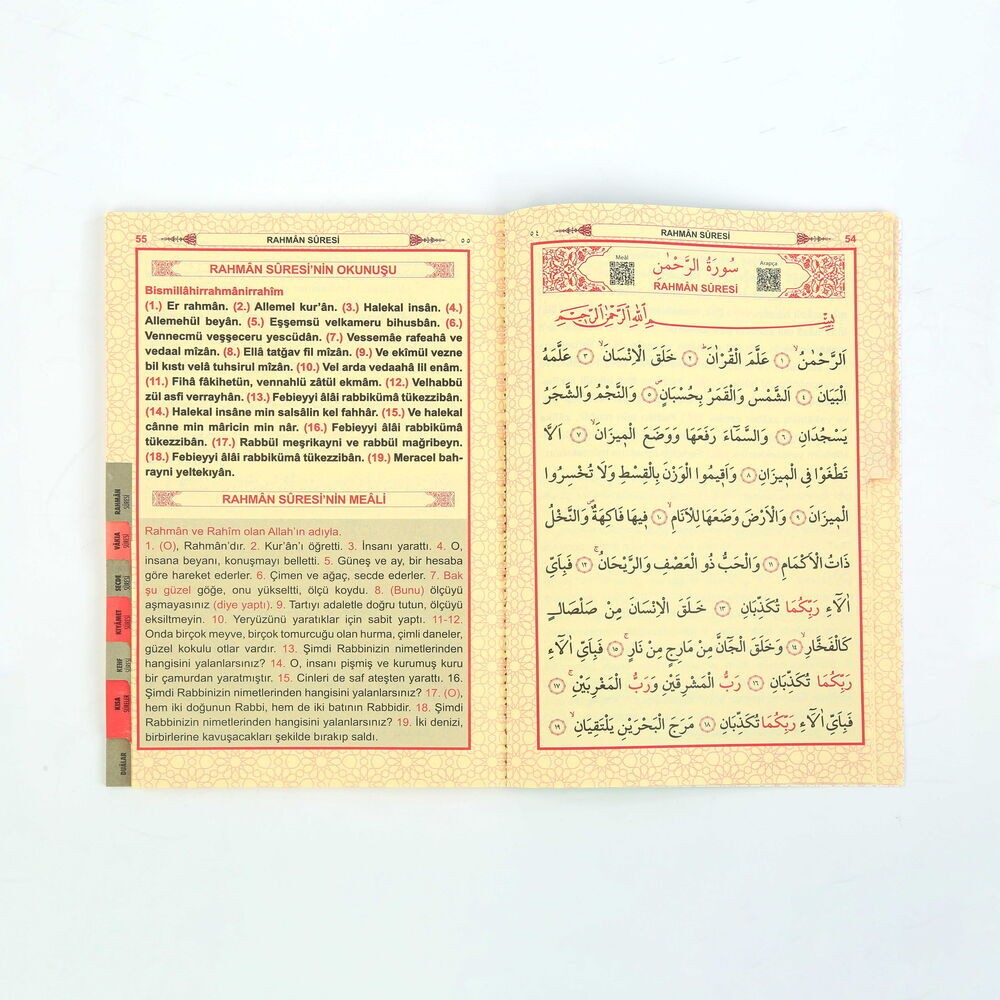 55
RAHMÂN SÛRESİ
٥٥
RAHMÂN SÛRESİ'NİN OKUNUŞU
Bismillâhirrahmânirrahîm
(1.) Er rahmân. (2.) Allemel kur'ân. (3.) Halekal insân. (4.)
Allemehül beyân. (5.) Eşşemsü velkameru bihusbân. (6.)
Vennecmü veşşeceru yescüdân. (7.) Vessemâe rafeahâ ve
vedaal mîzân. (8.) Ellâ tatğav fil mîzân. (9.) Ve ekîmül vezne
bil kıstı velâ tuhsirul mîzân. (10.) Vel arda vedaahâ lil enâm.
(11.) Fihâ fâkihetün, vennahlü zâtül ekmâm. (12.) Velhabbü
zül asfi verrayhân. (13.) Febieyyi âlâi rabbikümâ tükezzibân.
(14.) Halekal insâne min salsâlin kel fahhâr. (15.) Ve halekal
cânne min mâricin min nâr. (16.) Febieyyi âlâi rabbikümâ
tükezzibân. (17.) Rabbül meşrikayni ve rabbül mağribeyn.
(18.) Febieyyi âlâi rabbikümâ tükezzibân. (19.) Meracel bah-
rayni yeltekıyân.
RAHMÂN SÛRESİ'NİN MEÂLİ
Rahmân ve Rahîm olan Allah'ın adıyla.
1. (O), Rahmân'dır. 2. Kur'ân'ı öğretti. 3. İnsanı yarattı. 4. O,
insana beyanı, konuşmayı belletti. 5. Güneş ve ay, bir hesaba
göre hareket ederler. 6. Çimen ve ağaç, secde ederler. 7. Bak
şu güzel göğe, onu yükseltti, ölçü koydu. 8. (Bunu) ölçüyü
aşmayasınız (diye yaptı). 9. Tartıyı adaletle doğru tutun, ölçüyü
eksiltmeyin. 10. Yeryüzünü yaratıklar için sabit yaptı. 11-12.
Onda birçok meyve, birçok tomurcuğu olan hurma, çimli daneler,
güzel kokulu otlar vardır. 13. Şimdi Rabbinizin nimetlerinden
hangisini yalanlarsınız? 14. O, insanı pişmiş ve kurumuş kuru
bir çamurdan yaratmıştır. 15. Cinleri de saf ateşten yarattı. 16.
Şimdi Rabbinizin nimetlerinden hangisini yalanlarsınız? 17. (O),
hem iki doğunun Rabbi, hem de iki batının Rabbidir. 18. Şimdi
Rabbinizin nimetlerinden hangisini yalanlarsınız? 19. İki denizi,
birbirlerine kavuşacakları şekilde bırakıp saldı.
RAHMÂN
SÛRESİ
VÂKIA
SÛRESİ
SECDE
SÛRESİ
KIYÂMET
SÛRESİ
KEHF
SÛRESİ
KISA
SÛRELER
DUÂLAR
٥٤
RAHMÂN SÛRESİ
54
Meâl
سُورَةُ الرَّحْمٰنِ
Arapça
RAHMÂN SÛRESİ
بِسْمِ اللّٰهِ الرَّحْمٰنِ الرَّحِيمِ
اَلرَّحْمٰنُۙ ١ عَلَّمَ الْقُرْاٰنَۜ ٢ خَلَقَ الْاِنْسَانَۙ ٣ عَلَّمَهُ
الْبَيَانَ ٤ اَلشَّمْسُ وَالْقَمَرُ بِحُسْبَانٍۖ ٥ وَالنَّجْمُ وَالشَّجَرُ
يَسْجُدَانِ ٦ وَالسَّمَٓاءَ رَفَعَهَا وَوَضَعَ الْم۪يزَانَۙ ٧ اَلَّا
تَطْغَوْا فِي الْم۪يزَانِ ٨ وَاَق۪يمُوا الْوَزْنَ بِالْقِسْطِ وَلَا تُخْسِرُوا
الْم۪يزَانَ ٩ وَالْاَرْضَ وَضَعَهَا لِلْاَنَامِۙ ١٠ ف۪يهَا فَاكِهَةٌۖ وَالنَّخْلُ
ذَاتُ الْاَكْمَامِۚ ١١ وَالْحَبُّ ذُو الْعَصْفِ وَالرَّيْحَانُۚ ١٢ فَبِاَيِّ
اٰلَٓاءِ رَبِّكُمَا تُكَذِّبَانِ ١٣ خَلَقَ الْاِنْسَانَ مِنْ صَلْصَالٍ
كَالْفَخَّارِۙ ١٤ وَخَلَقَ الْجَٓانَّ مِنْ مَارِجٍ مِنْ نَارٍۚ ١٥ فَبِاَيِّ اٰلَٓاءِ
رَبِّكُمَا تُكَذِّبَانِ ١٦ رَبُّ الْمَشْرِقَيْنِ وَرَبُّ الْمَغْرِبَيْنِۚ ١٧
فَبِاَيِّ اٰلَٓاءِ رَبِّكُمَا تُكَذِّبَانِ ١٨ مَرَجَ الْبَحْرَيْنِ يَلْتَقِيَانِۙ ١٩